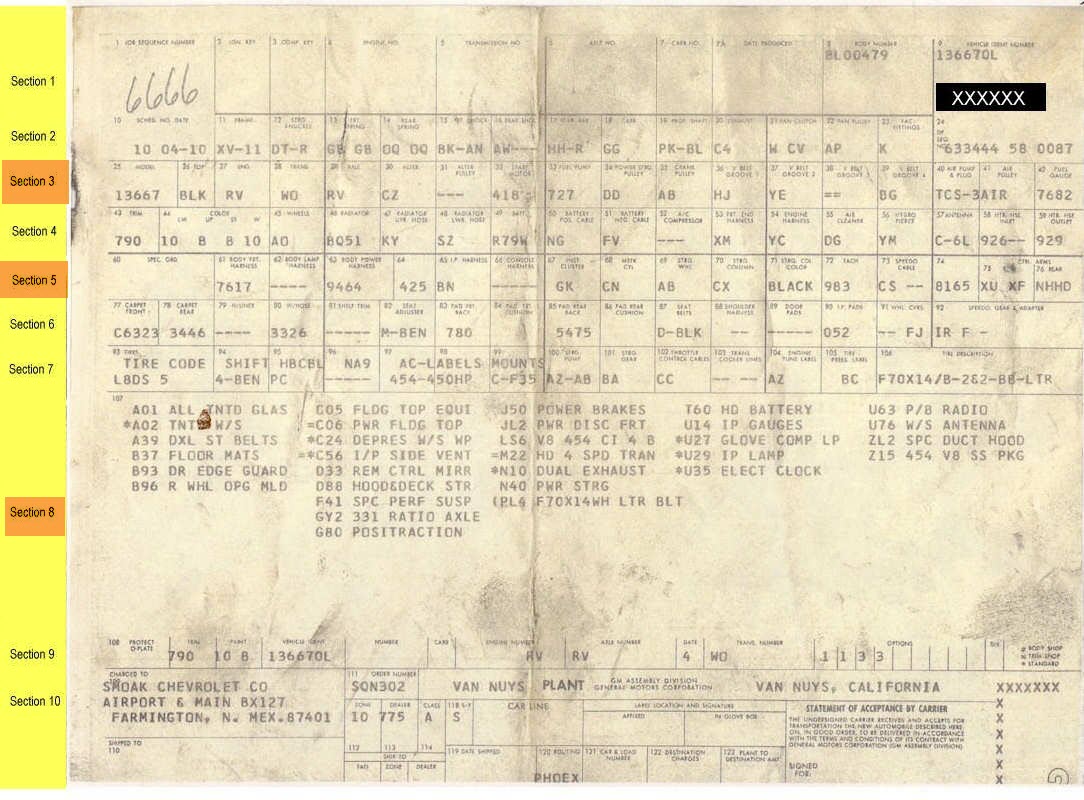 1 JOB SEQUENCE NUMBER 2 IGN. KEY 3 COMP. KEY 4 ENGINE NO. 5 TRANSMISSION NO. 6 AXLE NO. 7 CARB NO. 7A DATE PRODUCED 8 BODY NUMBER 9 VEHICLE IDENT NUMBER
BL00479 136670L
Section 1
6666
XXXXXX
10 SCHED. NO. DATE 11 FRAME 12 STRG KNUCKLE 13 FRT. SPRING 14 REAR SPRING 19 PROP. SHAFT 20 EXHAUST 21 FAN CLUTCH 22 FAN PULLEY 23 FITTINGS 24
Section 2
10 04-10 XV-11 DT-R GB GB OQ OQ BK-AN AW--- HH-R GG PK-BL C4 W CV AP K 633444 58 0087
25 MODEL 26 TOP 27 ENG. 28 TRANS. 29 AXLE 30 ALTER. 31 ALTER PULLEY 32 START MOTOR 33 FUEL PUMP 34 POWER STRG PULLEY 35 CRANK PULLEY 36 V BELT GROOVE 1 37 V BELT GROOVE 2 38 V BELT GROOVE 3 39 V BELT GROOVE 4 40 AIR PUMP & PLUG 41 AIR PULLEY 42 FUEL GAUGE
Section 3
13667 BLK RV WO RV CZ --- 418 727 DD AB HJ YE == BG TCS-3AIR 7682
43 TRIM 44 COLOR LW UP ST W 45 WHEELS 46 RADIATOR 47 RADIATOR UPR. HOSE 48 RADIATOR LWR. HOSE 49 BATT. 50 BATTERY POS. CABLE 51 BATTERY NEG. CABLE 52 A/C COMPRESSOR 53 FRT. END HARNESS 54 ENGINE HARNESS 55 AIR CLEANER 56 57 ANTENNA 58 HTR. HSE INLET 59 HTR. HSE OUTLET
Section 4
790 10 B B 10 AO BQ51 KY SZ R79W NG FV --- XM YC DG YM C-6L 926-- 929
60 SPEC. ORD. 61 BODY FRT. HARNESS 62 BODY LAMP HARNESS 63 BODY POWER HARNESS 64 65 I.P. HARNESS 66 CONSOLE HARNESS 67 INST. CLUSTER 68 MSTR CYL 69 STRG WHL 70 STRG COLUMN 71 STRG. COL COLOR 72 TACH 73 SPEEDO CABLE 74 75 CTRL. ARMS 76 REAR
Section 5
7617 ---- 9464 425 BN ---- GK CN AB CX BLACK 983 CS -- 8165 XU XF NHHD
77 CARPET FRONT 78 CARPET REAR 81 SHELF TRIM 82 SEAT ADJUSTER 83 PAD FRT. BACK 84 PAD FRT. CUSHION 85 PAD REAR BACK 86 PAD REAR CUSHION 87 SEAT BELTS 88 SHOULDER HARNESS 89 DOOR PADS 90 I.P. PADS 91 WHL. CVRS. 92 SPEEDO. GEAR & ADAPTER
Section 6
C6323 3446 ---- 3326 ---- M-BEN 780 5475 D-BLK -- ---- 052 -- FJ IR F -
93 TIRES 94 95 96 97 98 99 100 STRG PUMP 101 STRG GEAR 102 THROTTLE CONTROL CABLES 103 TRANS. COOLER LINES 104 ENGINE TUNE LABEL 105 TIRE PRESS. LABEL 106 TIRE DESCRIPTION
TIRE CODE SHIFT HBCBL NA9 AC-LABELS MOUNTS
Section 7
L8DS 5 4-BEN PC ----- 454-450HP C-F35 AZ-AB BA CC -- -- AZ BC F70X14/B-2&2-BB-LTR
107
A01 ALL TNTD GLAS C05 FLDG TOP EQUI J50 POWER BRAKES T60 HD BATTERY U63 P/B RADIO
*A02 TNTD W/S =C06 PWR FLDG TOP JL2 PWR DISC FRT U14 IP GAUGES U76 W/S ANTENNA
A39 DXL ST BELTS *C24 DEPRES W/S WP LS6 V8 454 CI 4 B *U27 GLOVE COMP LP ZL2 SPC DUCT HOOD
B37 FLOOR MATS =*C56 I/P SIDE VENT =M22 HD 4 SPD TRAN *U29 IP LAMP Z15 454 V8 SS PKG
B93 DR EDGE GUARD D33 REM CTRL MIRR *N10 DUAL EXHAUST *U35 ELECT CLOCK
B96 R WHL OPG MLD D88 HOOD&DECK STR N40 PWR STRG
F41 SPC PERF SUSP (PL4 F70X14WH LTR BLT
Section 8
GY2 331 RATIO AXLE
G80 POSITRACTION
108 PROTECT O-PLATE TRIM PAINT VEHICLE IDENT NUMBER CARB ENGINE NUMBER AXLE NUMBER DATE TRANS. NUMBER OPTIONS
Section 9
790 10 B 136670L RV RV 4 WO 1 1 3 3
BODY SHOP
TRIM SHOP
* STANDARD
CHARGED TO
109
111 ORDER NUMBER
SMOAK CHEVROLET CO SQN302 VAN NUYS PLANT GM ASSEMBLY DIVISION GENERAL MOTORS CORPORATION VAN NUYS, CALIFORNIA XXXXXXX
Section 10
AIRPORT & MAIN BX127
FARMINGTON, N. MEX.87401
ZONE DEALER CLASS 118 S-F CAR LINE LABEL LOCATION AND SIGNATURE STATEMENT OF ACCEPTANCE BY CARRIER X
10 775 A S AFFIXED IN GLOVE BOX
THE UNDERSIGNED CARRIER RECEIVES AND ACCEPTS FOR
TRANSPORTATION THE NEW AUTOMOBILE DESCRIBED HERE
ON, IN GOOD ORDER, TO BE DELIVERED IN ACCORDANCE
WITH THE TERMS AND CONDITIONS OF ITS CONTRACT WITH
GENERAL MOTORS CORPORATION (GM ASSEMBLY DIVISION).
X
X
X
SHIPPED TO
110
112 113 114 SHIP TO 119 DATE SHIPPED 120 ROUTING 121 CAR & LOAD NUMBER 122 DESTINATION CHARGES 123 PLANT TO DESTINATION AMT
FAO ZONE DEALER
SIGNED
FOR:
X
X
PHOEX